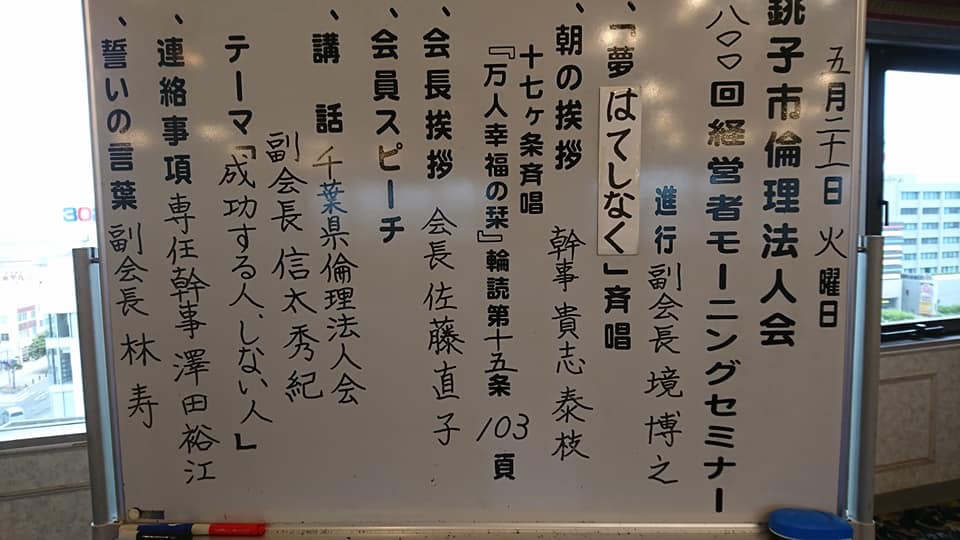 五月二十一日 火曜日
銚子市倫理法人会
八〇〇回経営者モーニングセミナー
進行 副会長 境 博之
、「夢はてしなく」斉唱
、朝の挨拶 幹事 貴志 泰枝
十七ヶ条斉唱
『万人幸福の栞』輪読第十五条 103 頁
、会長挨拶 会長 佐藤 直子
、会員スピーチ
、講 話 千葉県倫理法人会
副会長 信太 秀紀
テーマ「成功する人、しない人」
、連絡事項 専任幹事 澤田 裕江
、誓いの言葉 副会長 林 寿